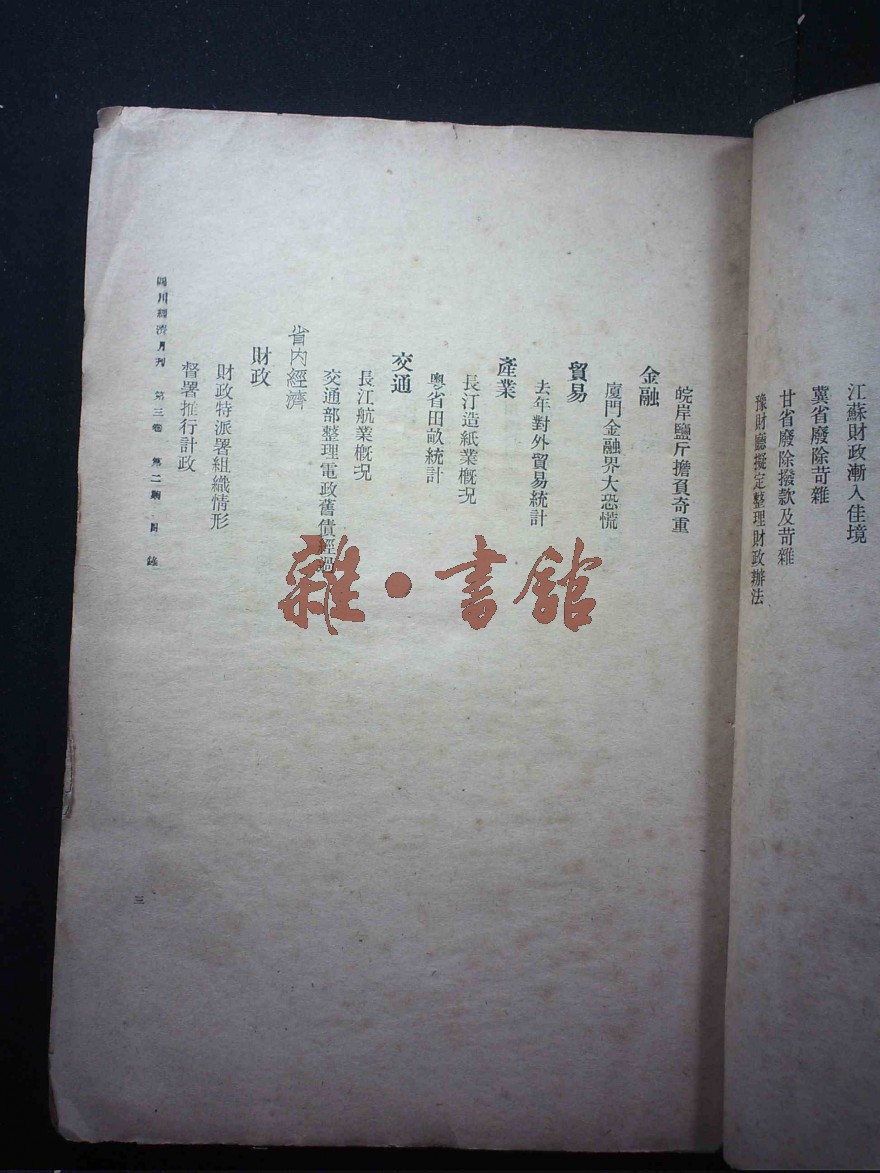 江蘇財政漸入佳境
冀省廢除苛雜
甘省廢除撥款及苛雜
豫財廳擬定整理財政辦法
皖岸鹽斤擔負奇重
金融
廈門金融界大恐慌
貿易
去年對外貿易統計
產業
長汀造紙業概況
粵省田畝統計
交通
長江航業概況
交通部整理電政舊債經過
省內經濟
財政
財政特派署組織情形
督署推行計政
四川經濟月刊 第三卷 第二期 目錄
三
雜·書館